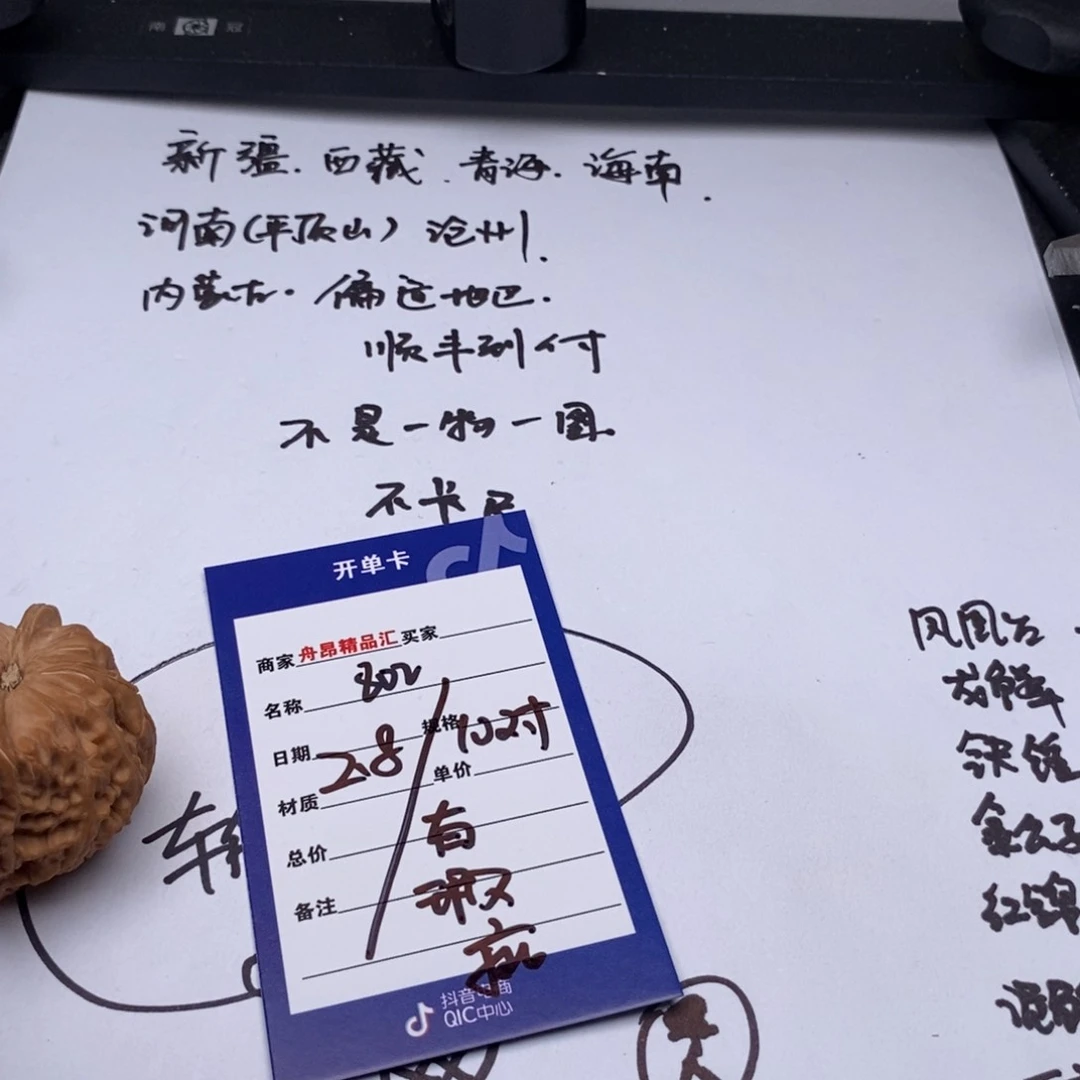 南 冠
新疆.西藏.青海.海南.
河南(平顶山)沧州.
内蒙古.偏远地区.
顺丰到付
不是一物一图.
不卡尺
开单卡
商家 舟昂精品汇 买家
名称 802
日期 规格
2.8 102对
材质 单价
总价 有
备注
瑕
疵
抖音电商
QIC中心
凤凰台
龙鳞
铁锥
金公子
红锦